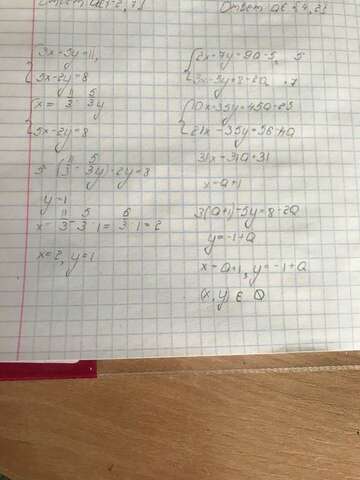 Ответ
3x-5y=11,
5x-2y=8
x= 11/3 - 5/3 y
5x-2y=8
5 (11/3 - 5/3y)-2y=8
y=1
x= 11/3 - 5/3 · 1 = 6/3 · 1 = 2
x=2, y=1
Ответ
2x+7y=9a-5, 5
3x-5y=8-2a · 7
10x+35y=45a-25
21x-35y=56-14a
31x=31a+31
x=a+1
3(a+1)-5y=8-2a
y=-1+a
x=a+1, y=-1+a
(x, y) ∈ Q